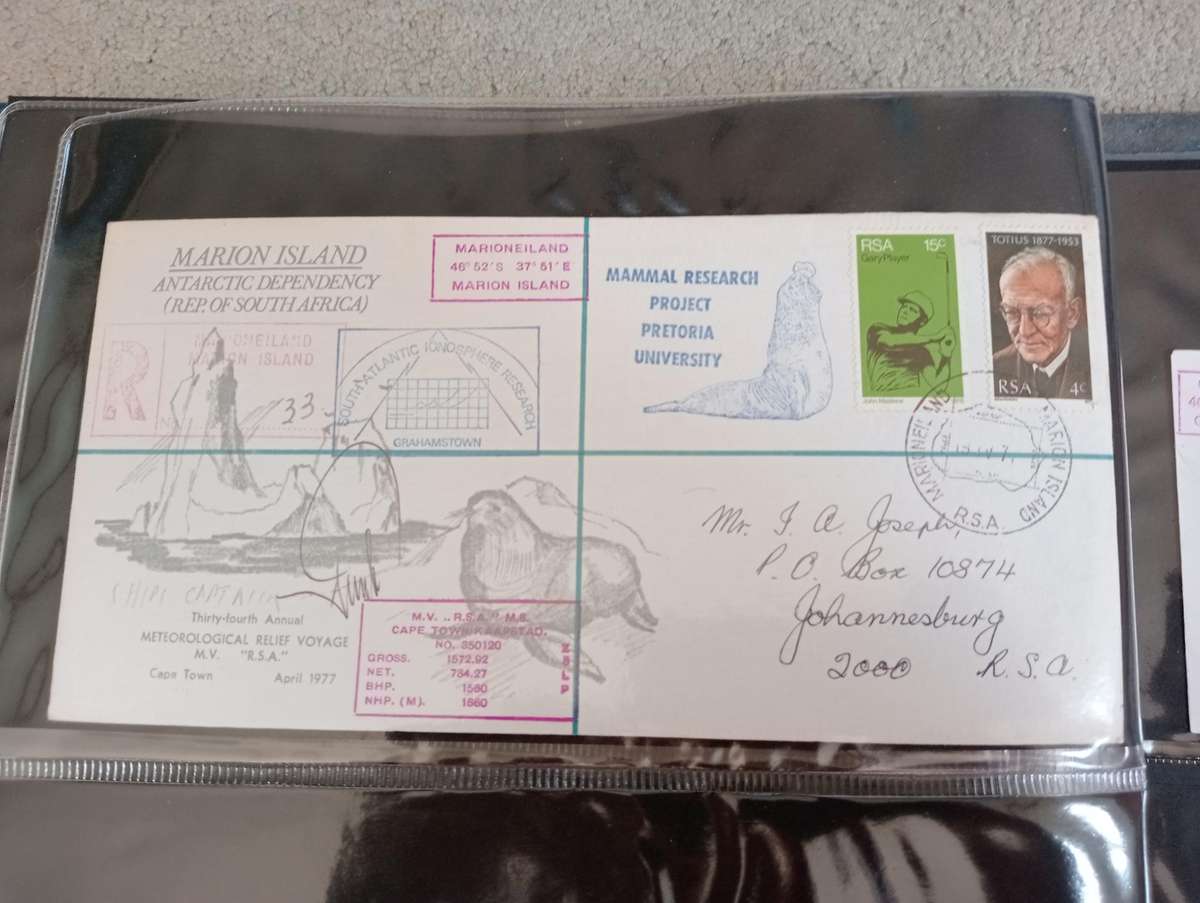 MARION ISLAND
ANTARCTIC DEPENDENCY
(REP. OF SOUTH AFRICA)
MARIONEILAND
46° 52' S 37° 51' E
MARION ISLAND
R
MARIONEILAND
MARION ISLAND
33
SOUTH ATLANTIC IONOSPHERE RESEARCH
GRAHAMSTOWN
MAMMAL RESEARCH
PROJECT
PRETORIA
UNIVERSITY
RSA 15c
Gary Player
TOTIUS 1877-1953
RSA 4c
MARIONEILAND MARION ISLAND
R.S.A.
Mr. I. A. Joseph,
P.O. Box 10874
Johannesburg
2000 R.S.A.
SHIPS CAPTAIN
Thirty-fourth Annual
METEOROLOGICAL RELIEF VOYAGE
M.V. "R.S.A."
Cape Town April 1977
M.V. „R.S.A." M.S.
CAPE TOWN/KAAPSTAD.
NO. 350120
GROSS. 1572.92
NET. 734.27
BHP. 1560
NHP. (M). 1660
ZSLP